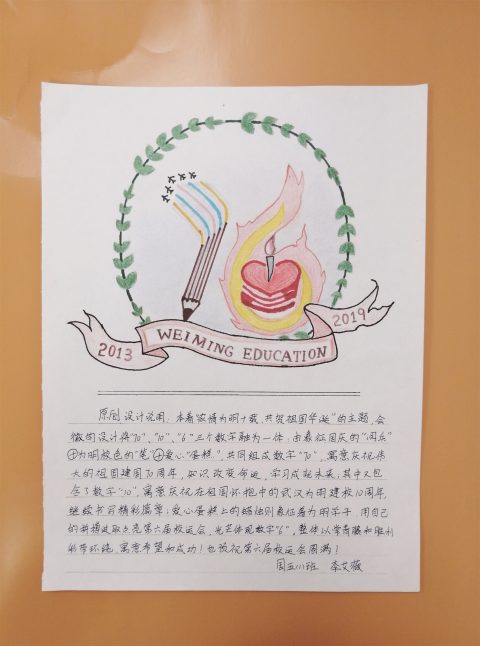 2013
WEIMING EDUCATION
2019
原创设计说明：本着"浓情为明十载，共贺祖国华诞"的主题，会
徽的设计将"70"、"10"、"6"三个数字融为一体。由象征国庆的"阅兵"
为明校色的"笔"爱心"蛋糕"上共同组成数字"70"，寓意庆祝伟
大的祖国建国70周年，知识改变命运，学习成就未来；其中又包
含了数字"10"，寓意庆祝在祖国怀抱中的武汉为明建校10周年，
继续书写精彩篇章；爱心蛋糕上的蜡烛则象征着为明学子，用自己
的拼搏进取点亮第六届校运会，光芒体现数字"6"，整体以常青藤和胜利
彩带环绕，寓意希望和成功！也预祝第六届校运会圆满！
李艾薇